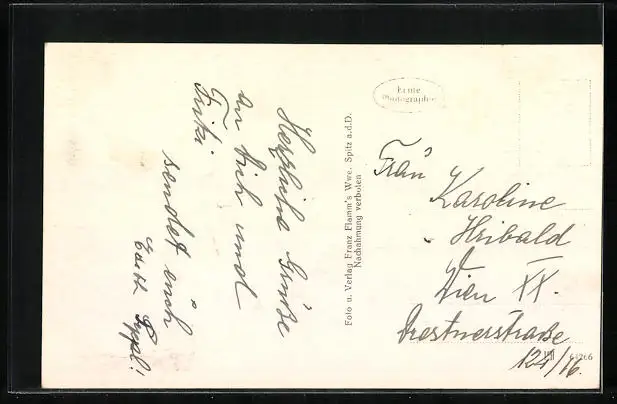 Herzliche Grüße
an Dich und
Finki
sendet euch
Edith Seppl.
Foto u. Verlag Franz Flamm's Wwe. Spitz a.d.D.
Nachahmung verboten
Echte
Photographie
Frau
Karoline
Hribald
Wien XX.
Drestnerstraße
124/16.
64266